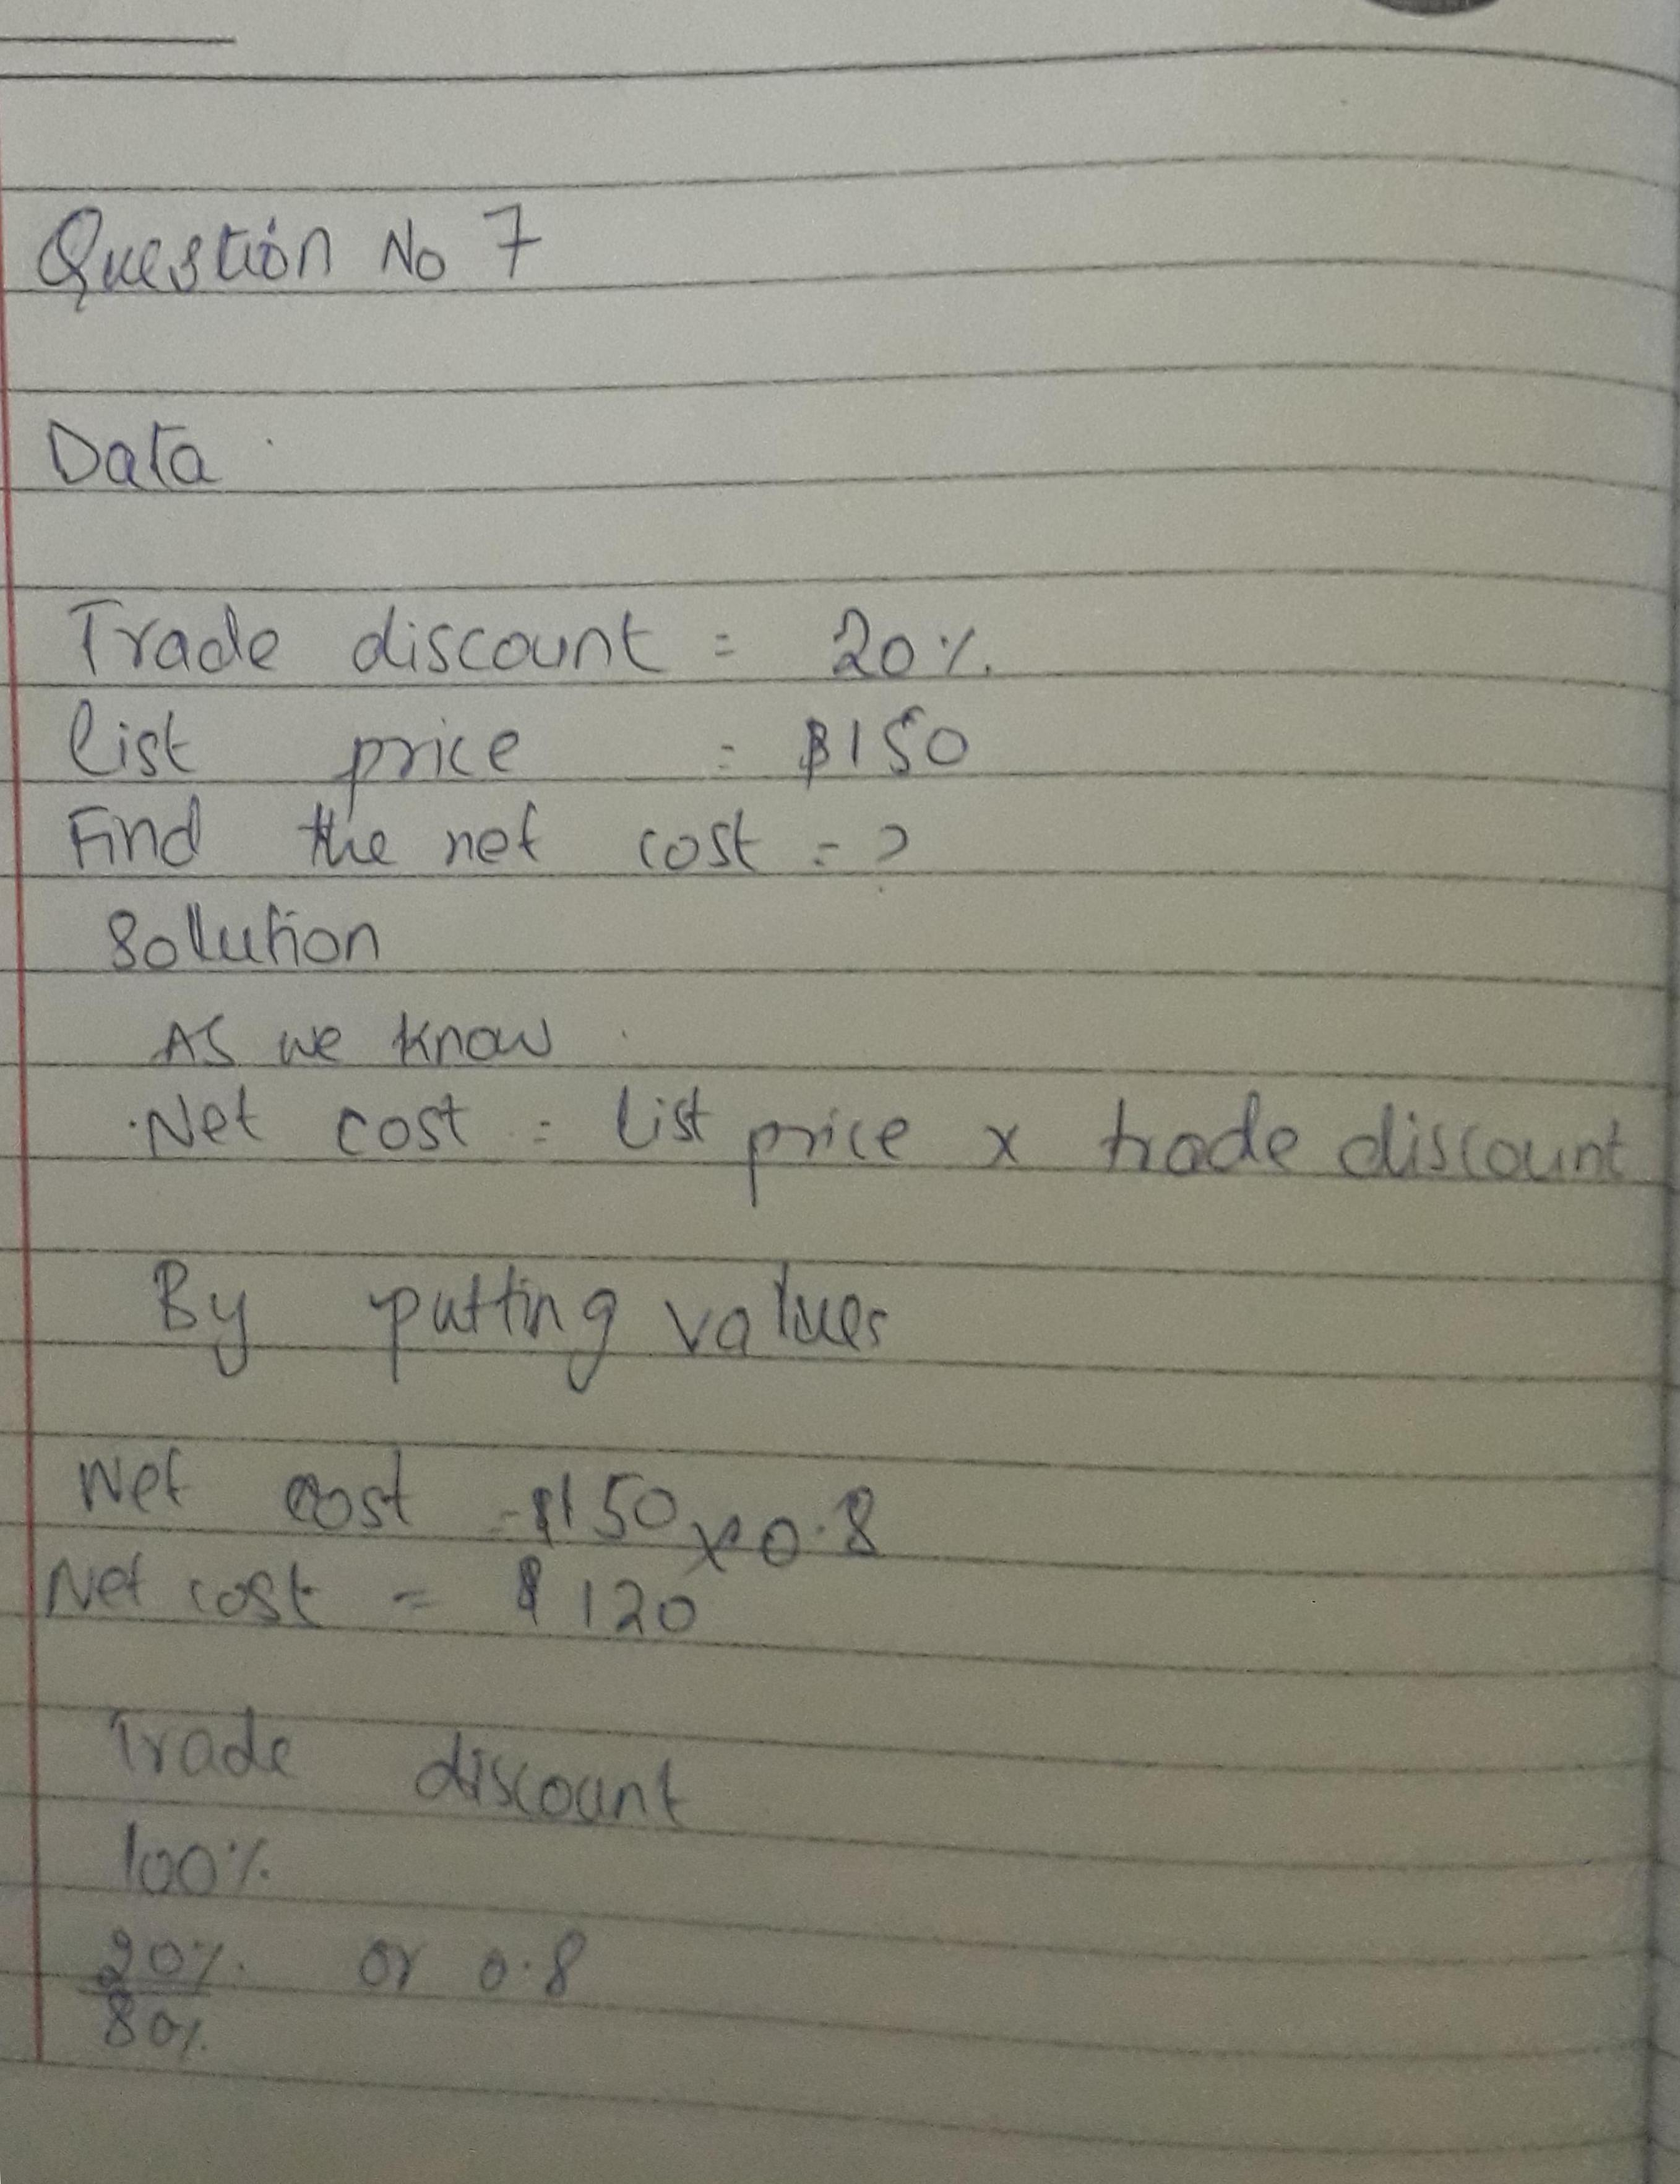 Question No 7
Data
Trade discount = 20%.
list price = $150
Find the net cost = ?
Solution
As we know
Net cost = list price x trade discount
By putting values
Net cost = $150 x 0.8
Net cost = $120
Trade discount
100%
20% or 0.8
80%